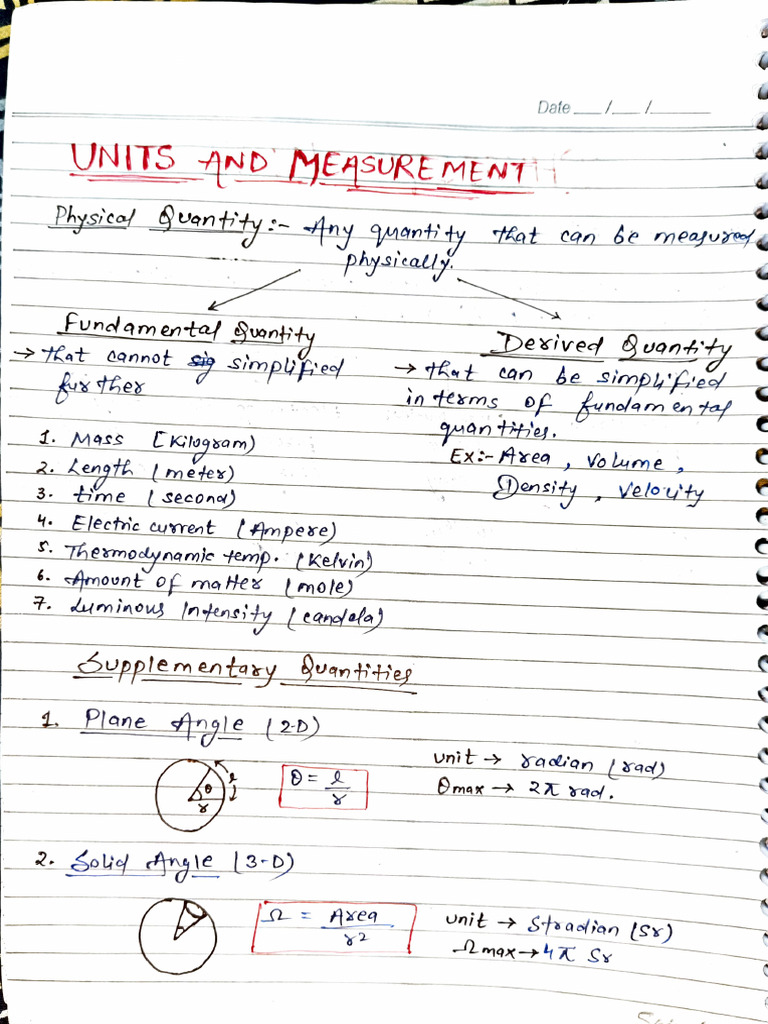 Date __/__/____
UNITS AND MEASUREMENT
Physical Quantity:- Any quantity that can be measured
physically.
Fundamental Quantity
→ that cannot simplified
further
1. Mass [Kilogram)
2. Length (meter)
3. time (second)
4. Electric current (Ampere)
5. Thermodynamic temp. (Kelvin)
6. Amount of matter (mole)
7. Luminous Intensity (candela)
Derived Quantity
→ that can be simplified
in terms of fundamental
quantities.
Ex:- Area, Volume,
Density, Velocity
Supplementary Quantities
1. Plane Angle (2-D)
θ l r
θ = l/r
unit → radian (rad)
θmax → 2π rad.
2. Solid Angle (3-D)
Ω = Area/r2
unit → Stradian (Sr)
Ωmax → 4π Sr